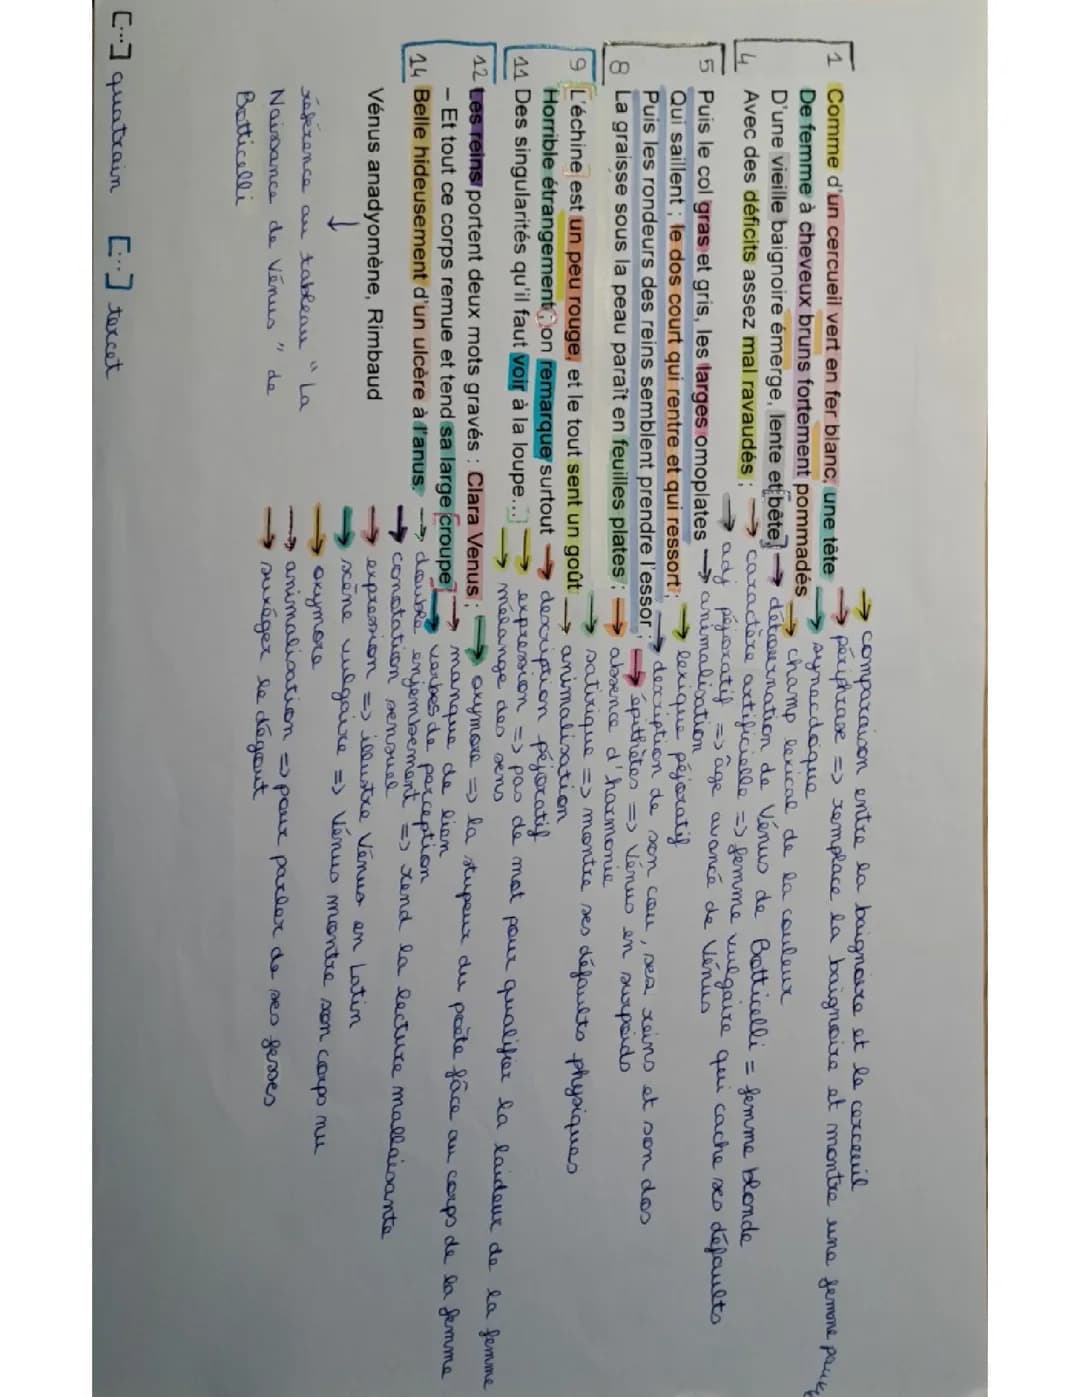 1 Comme d'un cercueil vert en fer blanc, une tête
De femme à cheveux bruns fortement pommadés
D'une vieille baignoire émerge, lente et bête,
4 Avec des déficits assez mal ravaudés ;
5 Puis le col gras et gris, les larges omoplates
Qui saillent ; le dos court qui rentre et qui ressort ;
Puis les rondeurs des reins semblent prendre l'essor ;
8 La graisse sous la peau paraît en feuilles plates ;
9 L'échine est un peu rouge, et le tout sent un goût
Horrible étrangement ; on remarque surtout
11 Des singularités qu'il faut voir à la loupe...
12 Les reins portent deux mots gravés : Clara Venus ;
- Et tout ce corps remue et tend sa large croupe
14 Belle hideusement d'un ulcère à l'anus.
Vénus anadyomène, Rimbaud
↓
référence au tableau "La
Naissance de Vénus" de
Botticelli
[...] quatrain [...] tercet
→ comparaison entre la baignoire et le cerceuil
→ périphrase => remplace la baignoire et montre une femme
→ synecdoque
→ champ lexical de la couleur
→ détournation de Vénus de Botticelli = femme blonde
→ caractère artificielle => femme vulgaire qui cache ses défaults
→ adj péjoratif => âge avancé de Vénus
→ animalisation
→ lexique péjoratif
→ description de son cou, ses reins et son dos
→ épithètes => Vénus en surpoids
→ absence d'harmonie
→ satirique => montre ses défaults physiques
→ animalisation
→ description péjoratif
→ expression => pas de mot pour qualifier la laideur de la femme
→ mélange des sens
→ oxymore => la stupeur du poète fâce au corps de la femme
→ manque de lien
→ verbes de perception
→ double enjembement => rend la lecture mallaisante
→ conotation sensuel
→ expression => illustre Vénus en Latin
→ scène vulgaire => Vénus montre son corps nu
→ oxymore
→ animalisation => pour parler de ses fesses
→ suréger le dégout